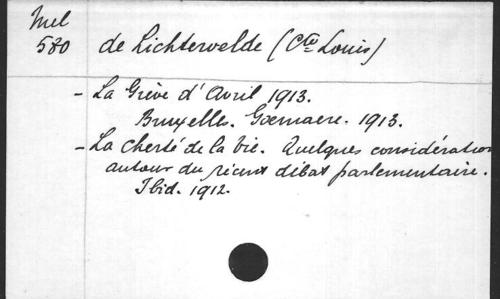 Mel
580 de Lichtervelde (Cte Louis)
- La Grève d'Avril 1913.
Bruxelles. Goemaere. 1913.
- La Cherté de la Vie. Quelques considération
autour du récent débat parlementaire.
Ibid. 1912.